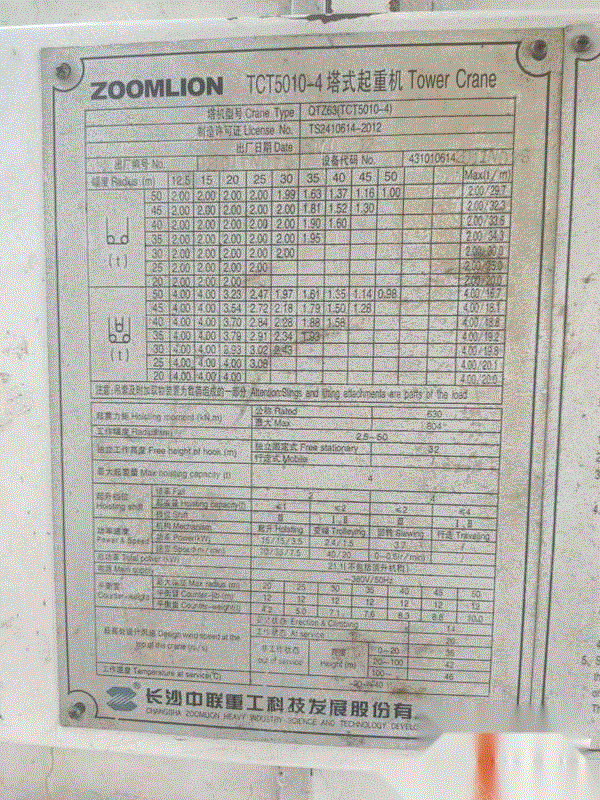 ZOOMLION TCT5010-4 塔式起重机 Tower Crane
塔机型号 Crane Type QTZ63(TCT5010-4)
制造许可证 License No. TS2410614-2012
出厂日期 Date
出厂编号 No. 设备代码 No. 431010614
幅度 Radius (m) 12.5 15 20 25 30 35 40 45 50 Max(t/m)
50 2.00 2.00 2.00 2.00 1.99 1.63 1.37 1.16 1.00 2.00/29.7
45 2.00 2.00 2.00 2.00 2.00 1.81 1.52 1.30 2.00/32.3
40 2.00 2.00 2.00 2.00 2.00 1.90 1.60 2.00/33.6
35 2.00 2.00 2.00 2.00 2.00 1.95 2.00/34.3
(t)
30 2.00 2.00 2.00 2.00 2.00
25 2.00 2.00 2.00 2.00
20 2.00 2.00 2.00
50 4.00 4.00 3.23 2.47 1.97 1.61 1.35 1.14 0.98 4.00/16.7
45 4.00 4.00 3.54 2.72 2.18 1.79 1.50 1.28 4.00/18.1
40 4.00 4.00 3.70 2.84 2.28 1.88 1.58 4.00/18.8
35 4.00 4.00 3.79 2.91 2.34 1.93 4.00/19.2
(t)
30 4.00 4.00 3.93 3.02 2.43 4.00/19.8
25 4.00 4.00 4.00 3.08 4.00/20.1
20 4.00 4.00 4.00 4.00/20.0
注意:吊索及附加取物装置为载荷组成的一部分 Attention:Slings and lifting attachments are parts of the load
起重力矩 Hoisting moment (kN.m) 公称 Rated 630
最大 Max 804
工作幅度 Radius(m) 2.5~50
独立工作高度 Free height of hook (m) 独立固定式 Free stationary 32
行走式 Mobile /
最大起重量 Max hoisting capacity (t) 4
起升档位 Hoisting shift 倍率 Fall 2 4
起重量 Hoisting capacity(t) ≤1 ≤2 ≤2 ≤4
档位 Shift Ⅲ Ⅰ、Ⅱ Ⅲ Ⅰ、Ⅱ
功率速度 Power & Speed 机构 Mechanism 起升 Hoisting 变幅 Trolleying 回转 Slewing 行走 Traveling
功率 Power(kW) 15/15/3.5 2.4/1.5
速度 Speed(m/min) 40/20
总功率 Total power (kW) 21.1(不包括顶升机构)
电源 Main supply ~380V/50Hz
平衡重 Counter-weight 最大幅度 Max radius (m) 20 25 30 35 40 45 50
12 12 12 12 12 12 12
平衡重 Counter-weight(t) 4.2 5.0 7.1
安装状态 Erection & Climbing 14
起重机设计风速 Design wind speed at the top of the crane (m/s) 工作状态 At service 20
非工作状态 out of service 高度 Height (m) 0~20 36
20~100 42
100 46
工作温度 Temperature at service(℃)
长沙中联重工科技发展股份有
CHANGSHA ZOOMLION HEAVY INDUSTRY SCIENCE AND TECHNOLOGY DEVELO